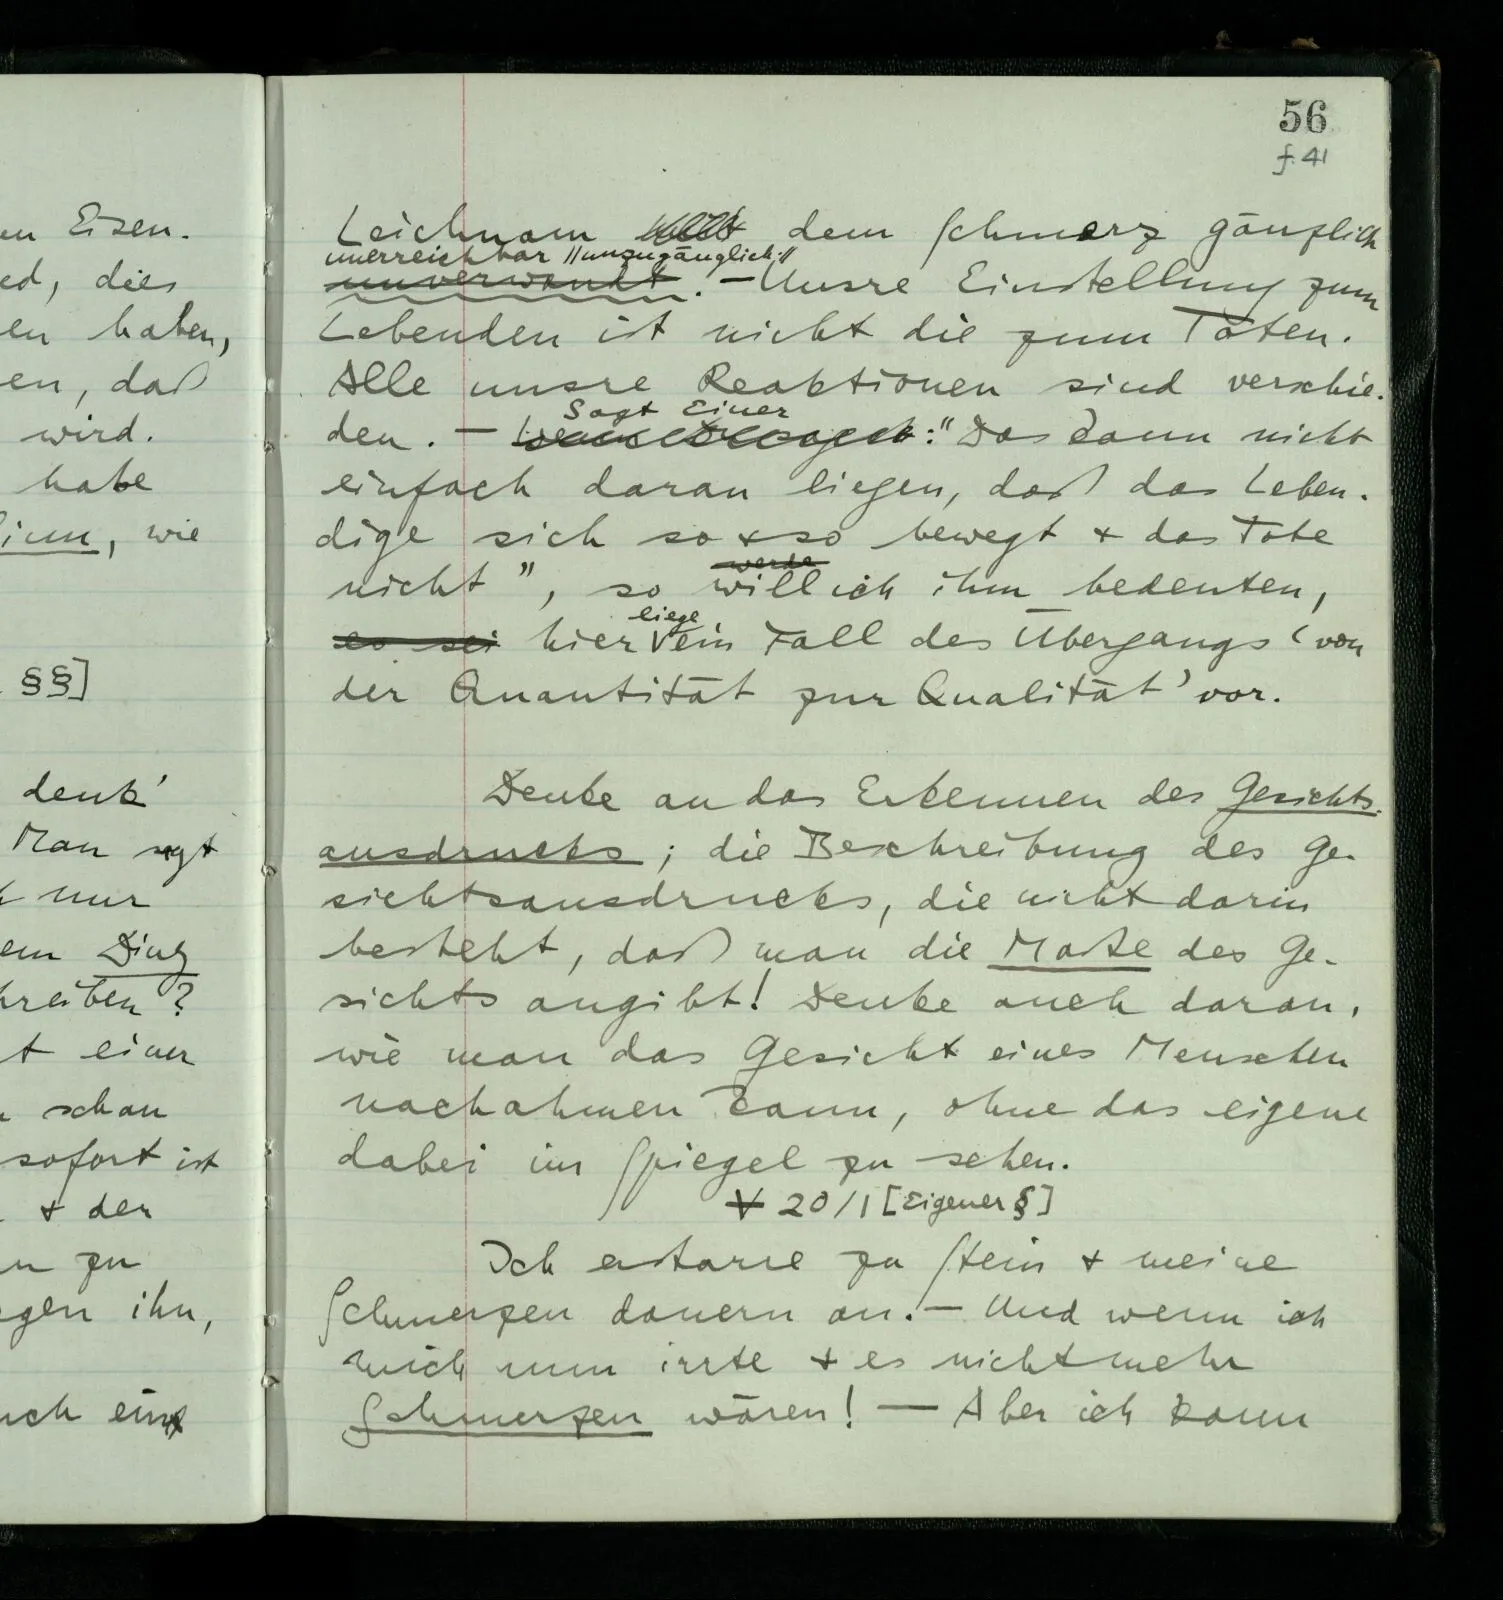 en Eisen.
ed, dies
en haben,
en, daß
wird.
habe
, wie
§§]
denk'
Man sagt
nur
em Ding
hreiben?
t einer
schon
sofort ist
+ der
zu
gen ihn,
uch eine
56
f. 41
Leichnam dem Schmerz gänzlich
unerreichbar //unzugänglich://
unverwandt. – Unsre Einstellung zum
Lebenden ist nicht die zum Toten.
Alle unsre Reaktionen sind verschie-
Sagt Einer
den. – : "Das kann nicht
einfach daran liegen, daß das Leben-
dige sich so + so bewegt + das Tote
werde
nicht", so will ich ihm bedeuten,
liege
es sei hier V ein Fall des Übergangs ‘von
der Quantität zur Qualität’ vor.
Denke an das Erkennen des Gesichts-
ausdrucks; die Beschreibung des Ge-
sichtsausdrucks, die nicht darin
besteht, daß man die Maße des Ge-
sichts angibt! Denke auch daran,
wie man das Gesicht eines Menschen
nachahmen kann, ohne das eigene
dabei im Spiegel zu sehen.
V 20/1 [Eigener §]
Ich erstarre zu Stein + meine
Schmerzen dauern an. – Und wenn ich
mich nun irrte + es nicht mehr
Schmerzen wären! — Aber ich kann